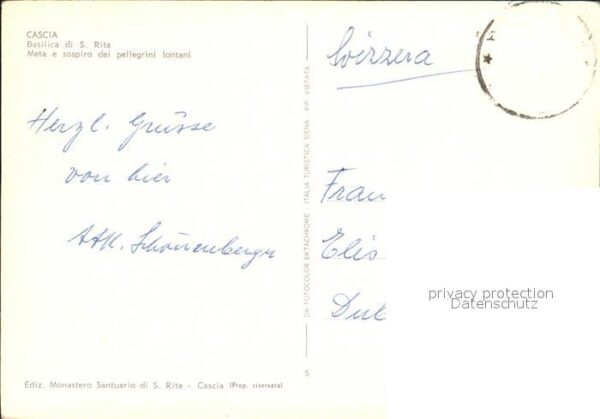 CASCIA
Basilica di S. Rita
Meta e sospiro dei pellegrini lontani
Herzl. Grüsse
von hier
Schönenberger
Ediz. Monastero Santuario di S. Rita - Cascia (Prop. riservata)
DA FOTOCOLOR EKTACHROME - ITALIA TURISTICA SIENA - RIP. VIETATA
5
Svizzera
Frau
Elis
privacy protection
Datenschutz